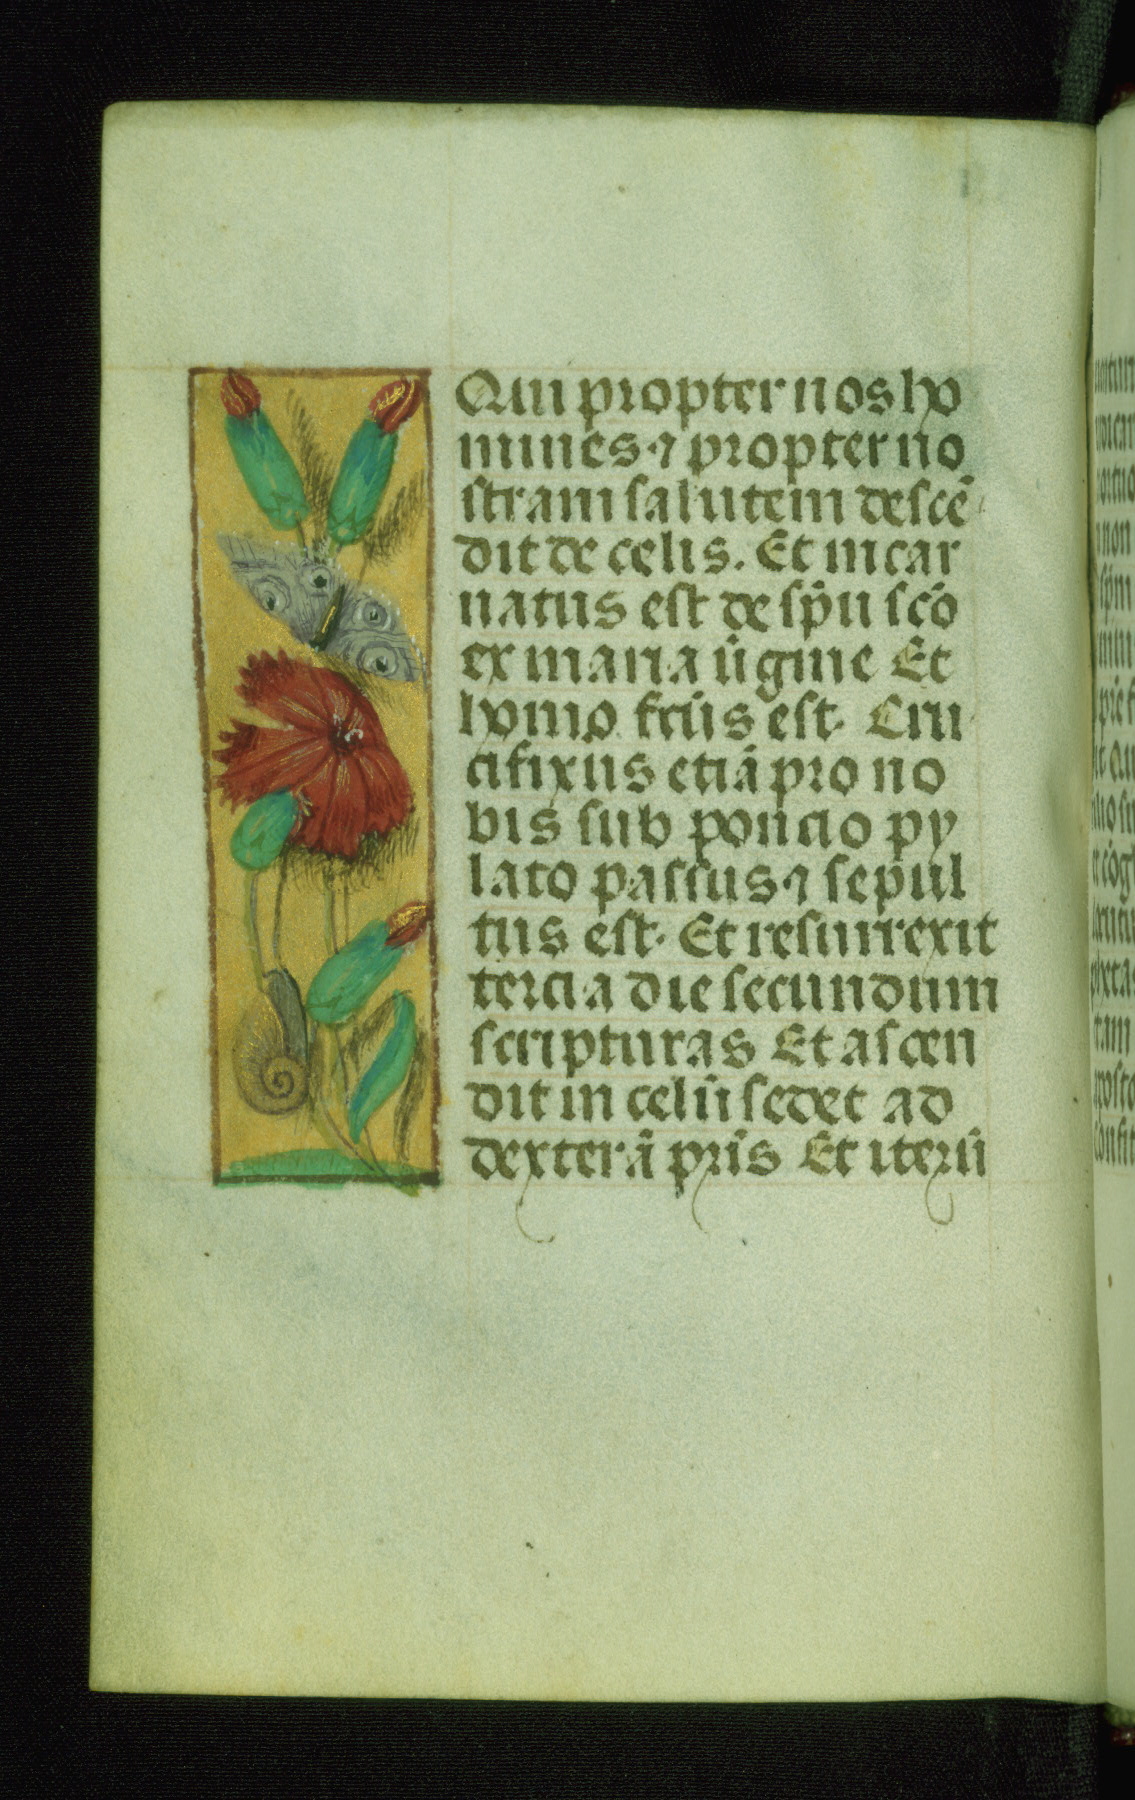 Qui propter nos ho
mines ⁊ propter no
stram salutem descē
dit de celis. Et incar
natus est de spū scō
ex maria ūgine Et
homo fcūs est. Cru
cifixus etiā pro no
bis sub poncio py
lato passus ⁊ sepul
tus est. Et resurrexit
tercia die secundum
scripturas Et ascen
dit in celū sedet ad
dexterā pr̄is Et iterū